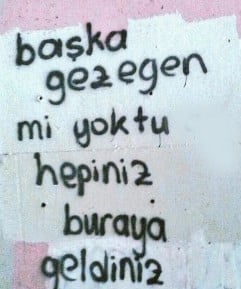 başka
gezegen
mi yoktu
hepiniz
buraya
geldiniz